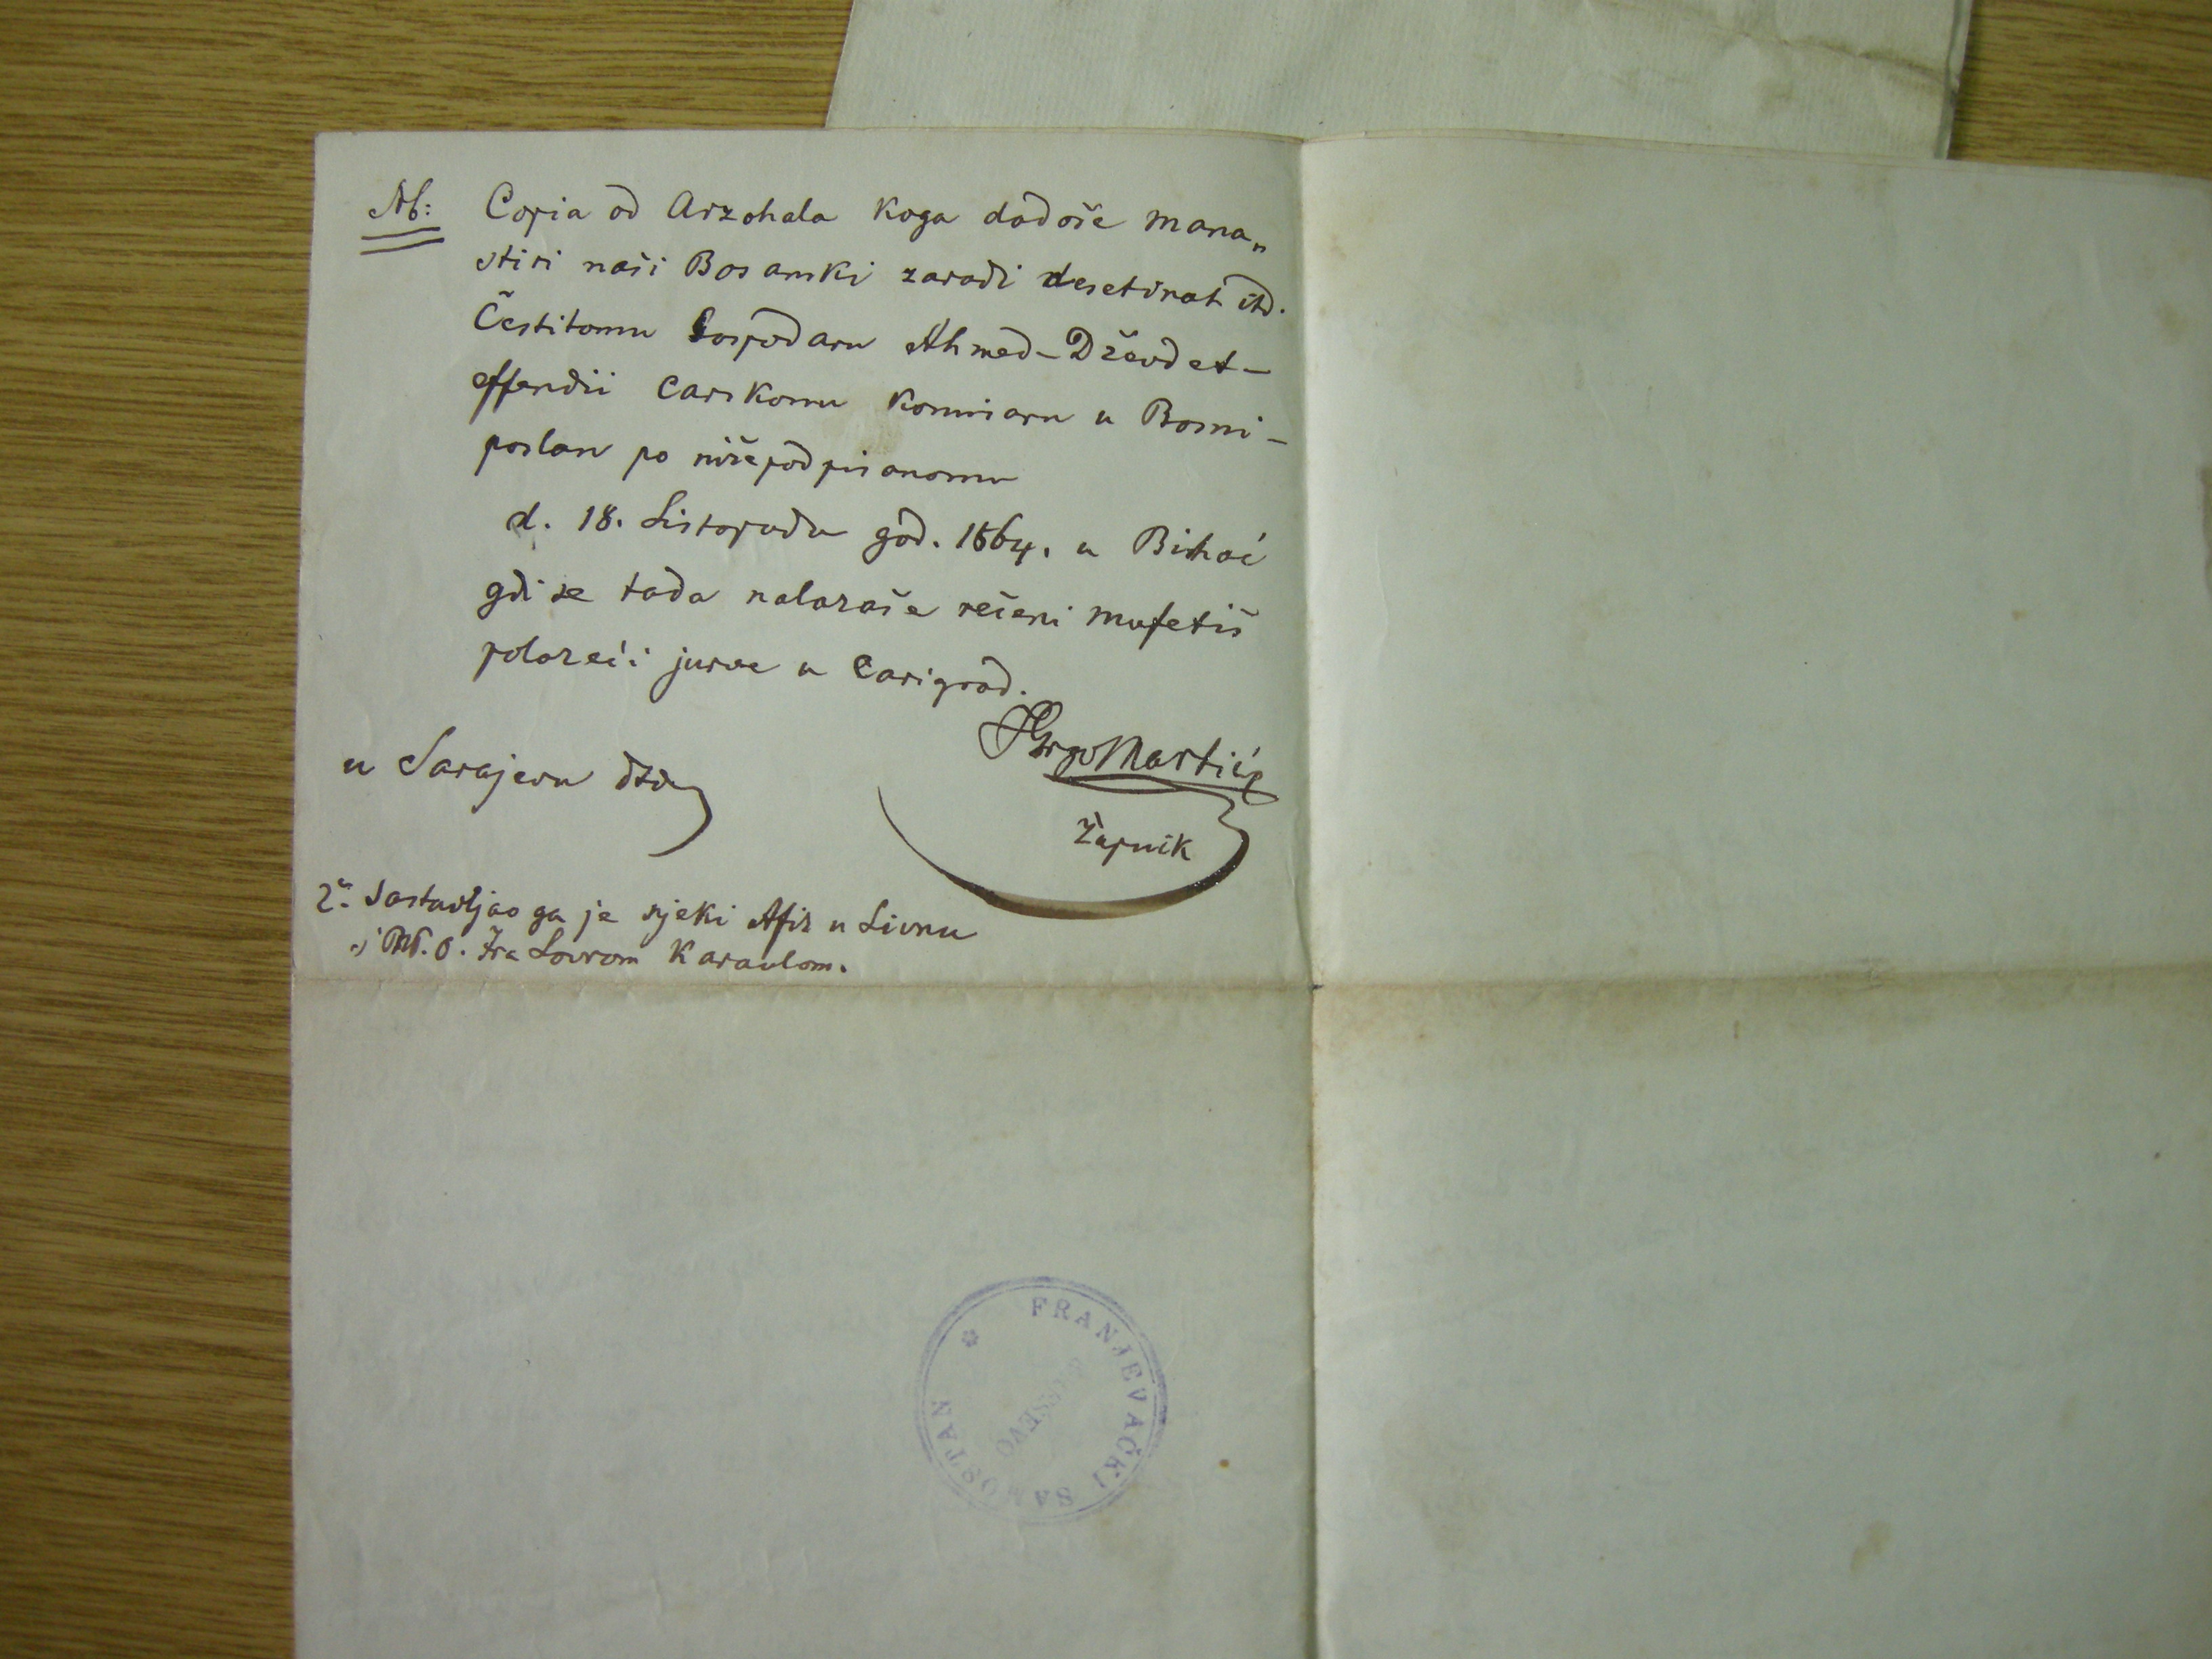 Nb: Copia od Arzohala koga dadoše mana„
stiri naši Bosanski zaradi desetinah itd.
Čestitomu Gospodaru Ahmed-Dževdet-
effendii Carskomu komisaru u Bosni-
poslan po nižepodpisanomu
d. 18. Listopada god. 1864. u Bihać
gdi se tada nalazaše rečeni mufetiš
polazeći jurve u Carigrad.
Grgo Martić
u Sarajevu dto
Župnik
2° Sastavljao ga je njeki Afiz u Livnu
s' P. O. Fra Lovrom Karaulom.
FRANJEVAČKI SAMOSTAN